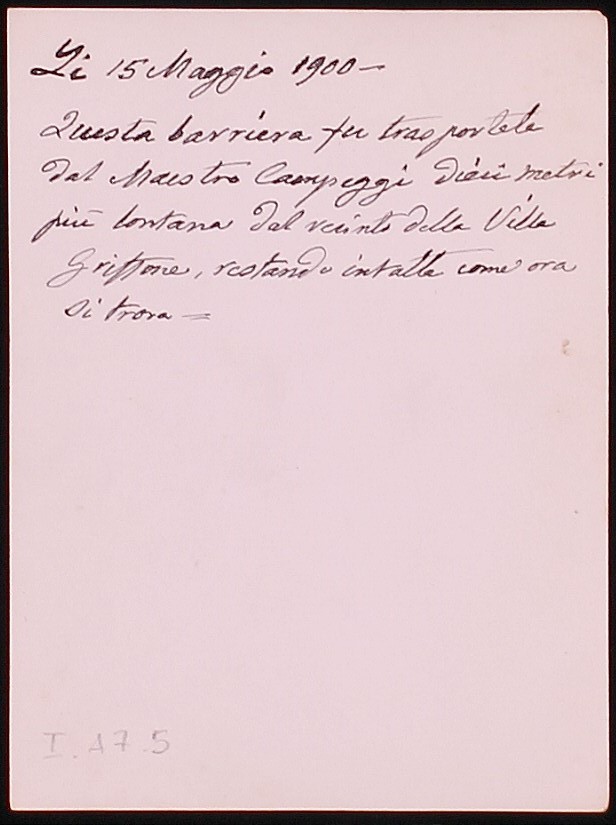 Li 15 Maggio 1900 —
Questa barriera fu trasportata
dal Maestro Campeggi dieci metri
più lontana dal recinto della Villa
Griffone, restando intatta come ora
si trova =
I. A7.5